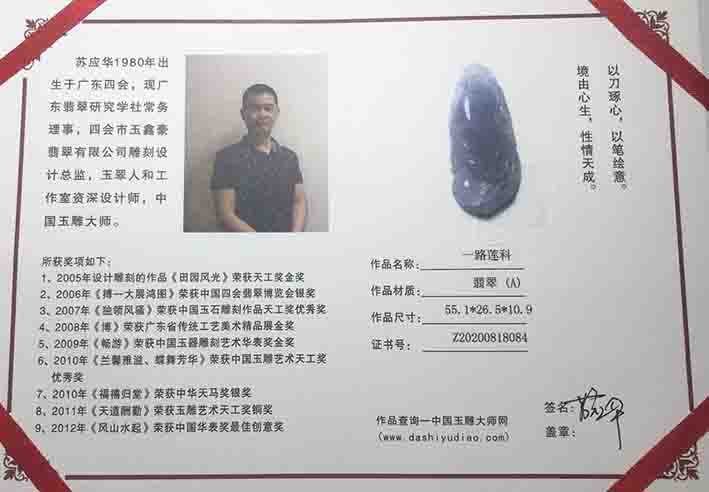 苏应华1980年出
生于广东四会，现广
东翡翠研究学社常务
理事，四会市玉鑫豪
翡翠有限公司雕刻设
计总监，玉翠人和工
作室资深设计师，中
国玉雕大师。
以刀琢心，以笔绘意。
境由心生，性情天成。
所获奖项如下：
1、2005年设计雕刻的作品《田园风光》荣获天工奖金奖
2、2006年《搏一大展鸿图》荣获中国四会翡翠博览会银奖
3、2007年《独领风骚》荣获中国玉石雕刻作品天工奖优秀奖
4、2008年《博》荣获广东省传统工艺美术精品展金奖
5、2009年《畅游》荣获中国玉器雕刻艺术华表奖金奖
6、2010年《兰馨雅滋、蝶舞芳华》荣获中国玉雕艺术天工奖
优秀奖
7、2010年《福禧归堂》荣获中华天马奖银奖
8、2011年《天道酬勤》荣获玉雕艺术天工奖铜奖
9、2012年《风山水起》荣获中国华表奖最佳创意奖
作品名称：一路莲科
作品材质：翡翠 (A)
作品尺寸：55.1*26.5*10.9
证书号：Z20200818084
作品查询一中国玉雕大师网
(www.dashiyudiao.com)
签名：
盖章：